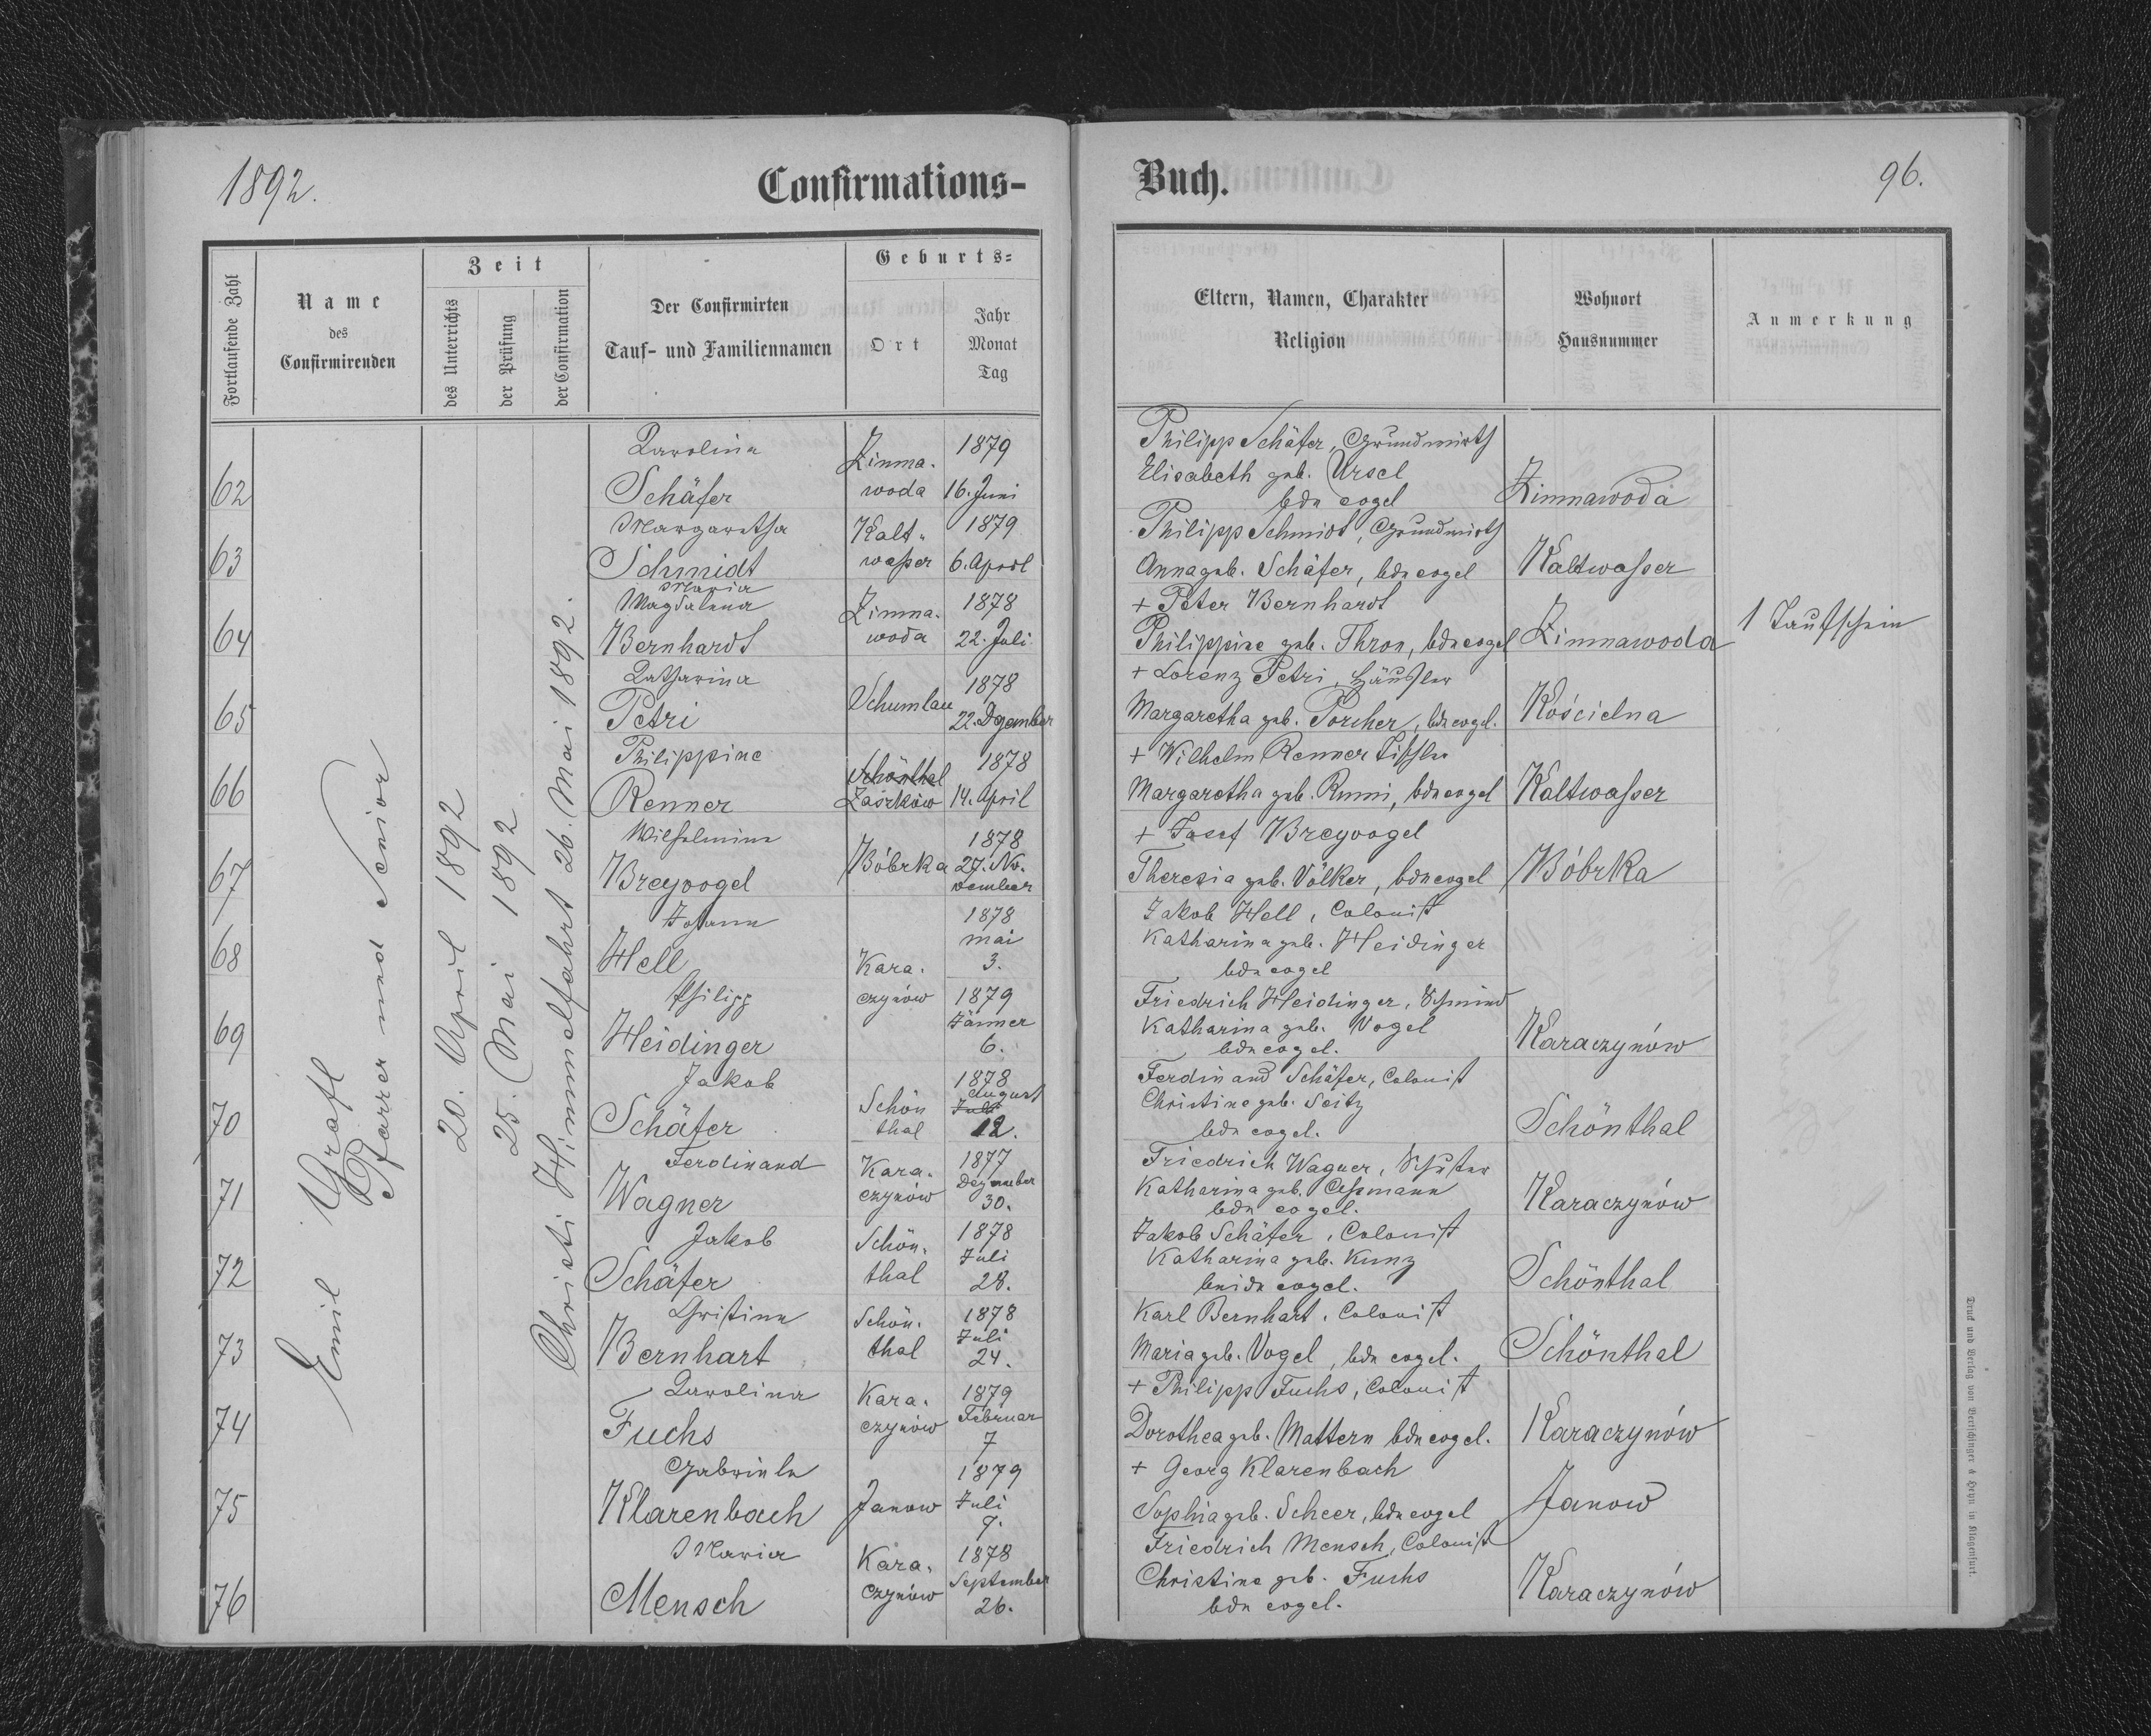 1892.
Confirmations-
Buch.
96.
Fortlaufende Zahl
Name
des
Confirmirenden
Zeit
des Unterrichts
der Prüfung
der Confirmation
Der Confirmirten
Tauf- und Familiennamen
Geburts-
Ort
Jahr
Monat
Tag
Eltern, Namen, Charakter
Religion
Wohnort
Hausnummer
Anmerkung
Emil Grafl
Pfarrer und Senior
20. April 1892
25. Mai 1892
Christi Himmelfahrt 26. Mai 1892.
62
Karolina
Schäfer
Zimna-
woda
1879
16. Juni
Philipp Schäfer, Grundwirth
Elisabeth geb. Ursel
bde evgel
Zimnawoda
63
Margaretha
Schmidt
Kalt-
waßer
1879
6. April
Philipp Schmidt, Grundwirth
Anna geb. Schäfer, bde evgel
Kaltwaßer
64
Maria
Magdalena
Bernhardt
Zimna-
woda
1878
22. Juli
+ Peter Bernhardt
Philippine geb. Thron, bde evgel
Zimnawoda
1 Taufschein
65
Katharina
Petri
Schumlau
1878
22. Dezember
+ Lorenz Petri, Häusler
Margaretha geb. Porcher, bde evgel.
Kościelna
66
Philippine
Renner
Schönthal
Zaszków
1878
14. April
+ Wilhelm Renner Tischler
Margaretha geb. Rumi, bde evgel
Kaltwaßer
67
Wilhelmine
Breyvogel
Bóbrka
1878
27. No-
vember
+ Josef Breyvogel
Theresia geb. Völker, bde evgel
Bóbrka
68
Johann
Hell
1878
Mai
3.
Jakob Hell, Colonist
Katharina geb. Heidinger
bde evgel
69
Philipp
Heidinger
Kara-
czynów
1879
Jänner
6.
Friedrich Heidinger, Schmied
Katharina geb. Vogel
bde evgel.
Karaczynów
70
Jakob
Schäfer
Schön
thal
1878
August
Juli
12.
Ferdinand Schäfer, Colonist
Christine geb. Seitz
bde evgel.
Schönthal
71
Ferdinand
Wagner
Kara-
czynów
1877
Dezember
30.
Friedrich Wagner, Schuster
Katharina geb. Eßmann
bde evgel.
Karaczynów
72
Jakob
Schäfer
Schön-
thal
1878
Juli
28.
Jakob Schäfer, Colonist
Katharina geb. Kunz
beide evgel.
Schönthal
73
Christine
Bernhart
Schön-
thal
1878
Juli
24.
Karl Bernhart, Colonist
Maria geb. Vogel, bde evgel.
Schönthal
74
Karolina
Fuchs
Kara-
czynów
1879
Februar
7
+ Philipp Fuchs, Colonist
Dorothea geb. Mattern bde evgel.
Karaczynów
75
Gabriele
Klarenbach
Janow
1879
Juli
9.
+ Georg Klarenbach
Sophia geb. Scheer, bde evgel
Janow
76
Maria
Mensch
Kara-
czynów
1878
September
26.
Friedrich Mensch, Colonist
Christine geb. Fuchs
bde evgel.
Karaczynów
Druck und Verlag von Bertschinger & Heyn in Klagenfurt.